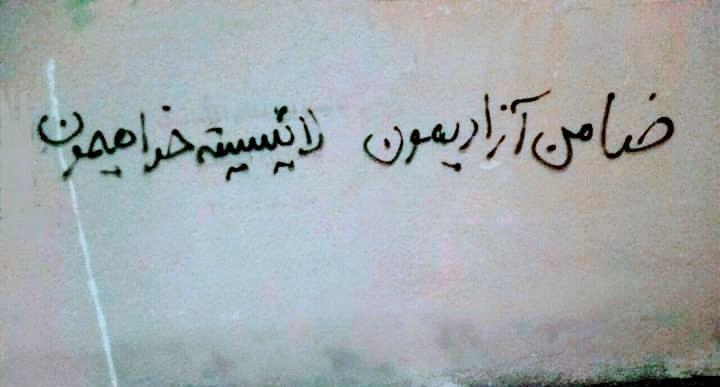 ضامن آزادیمون لائیسیته خداهیمون